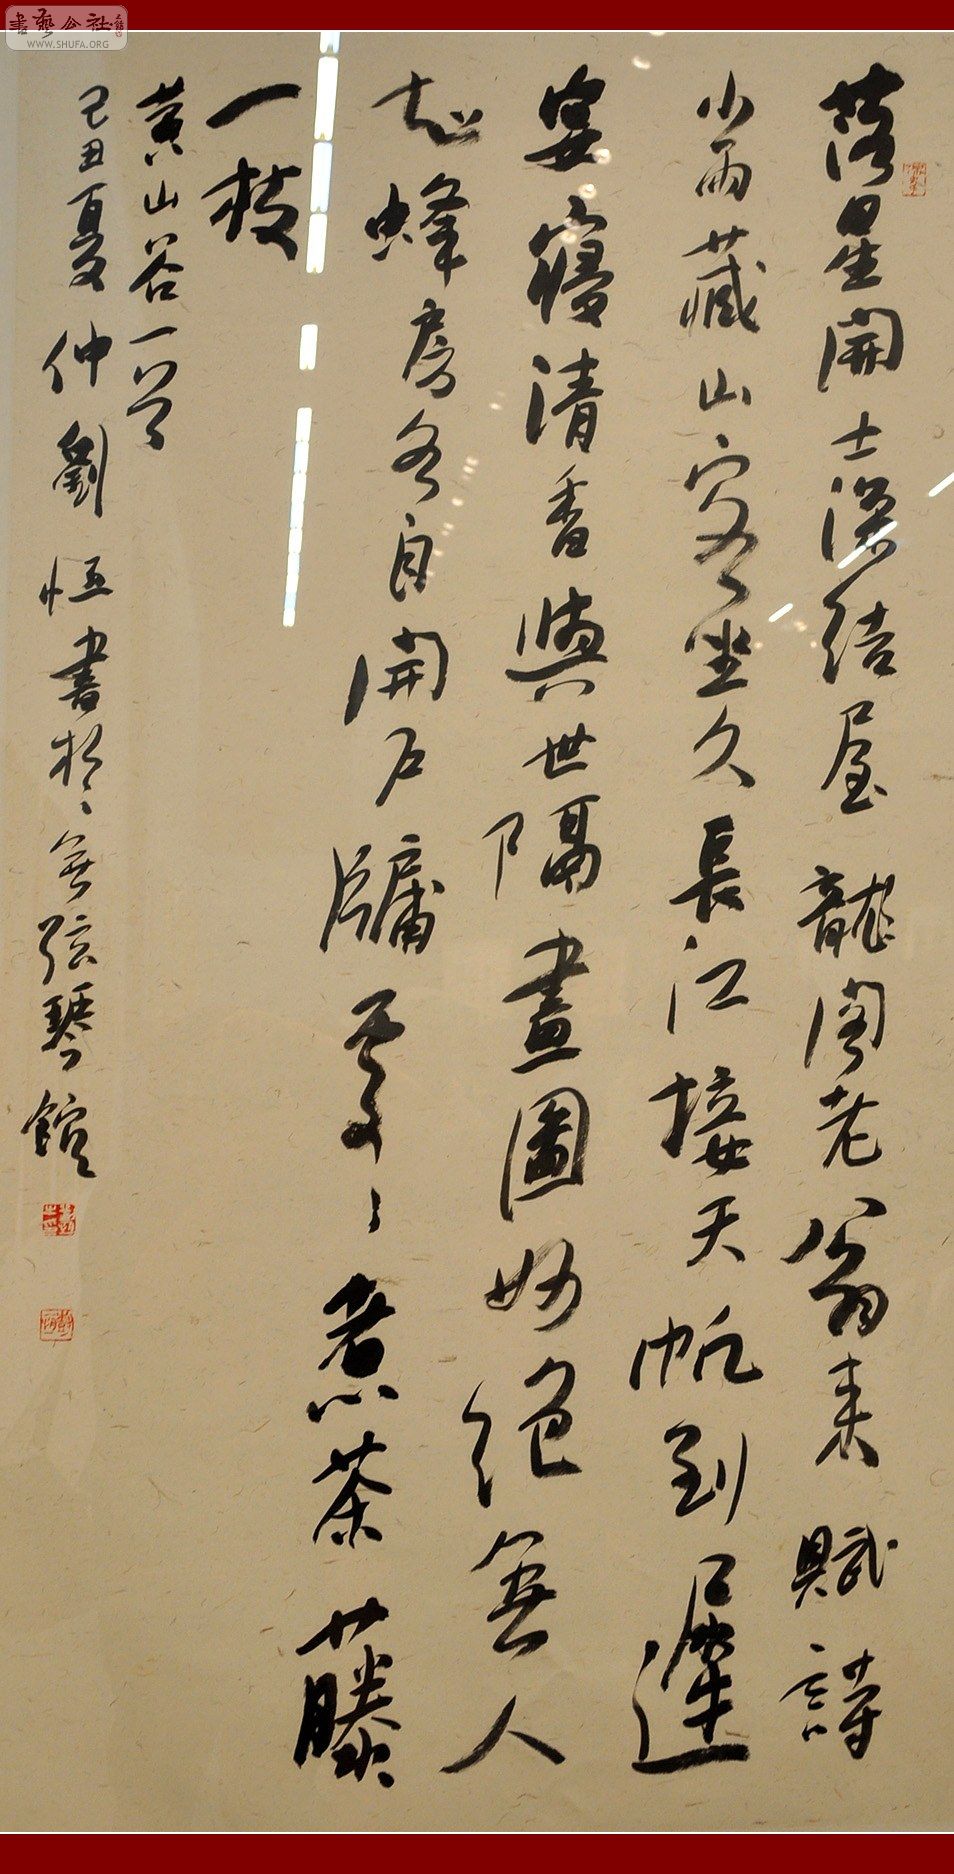 落星開士深結屋龍閣老翁来賦詩
小雨藏山客坐久長江接天帆到遲
宴寢清香與世隔畫圖妙絕無人
知蜂房各自開戶牖處〻煮茶藤
一枝
黄山谷一首
己丑夏仲劉恒書於無弦琴館
書藝公社
WWW.SHUFA.ORG